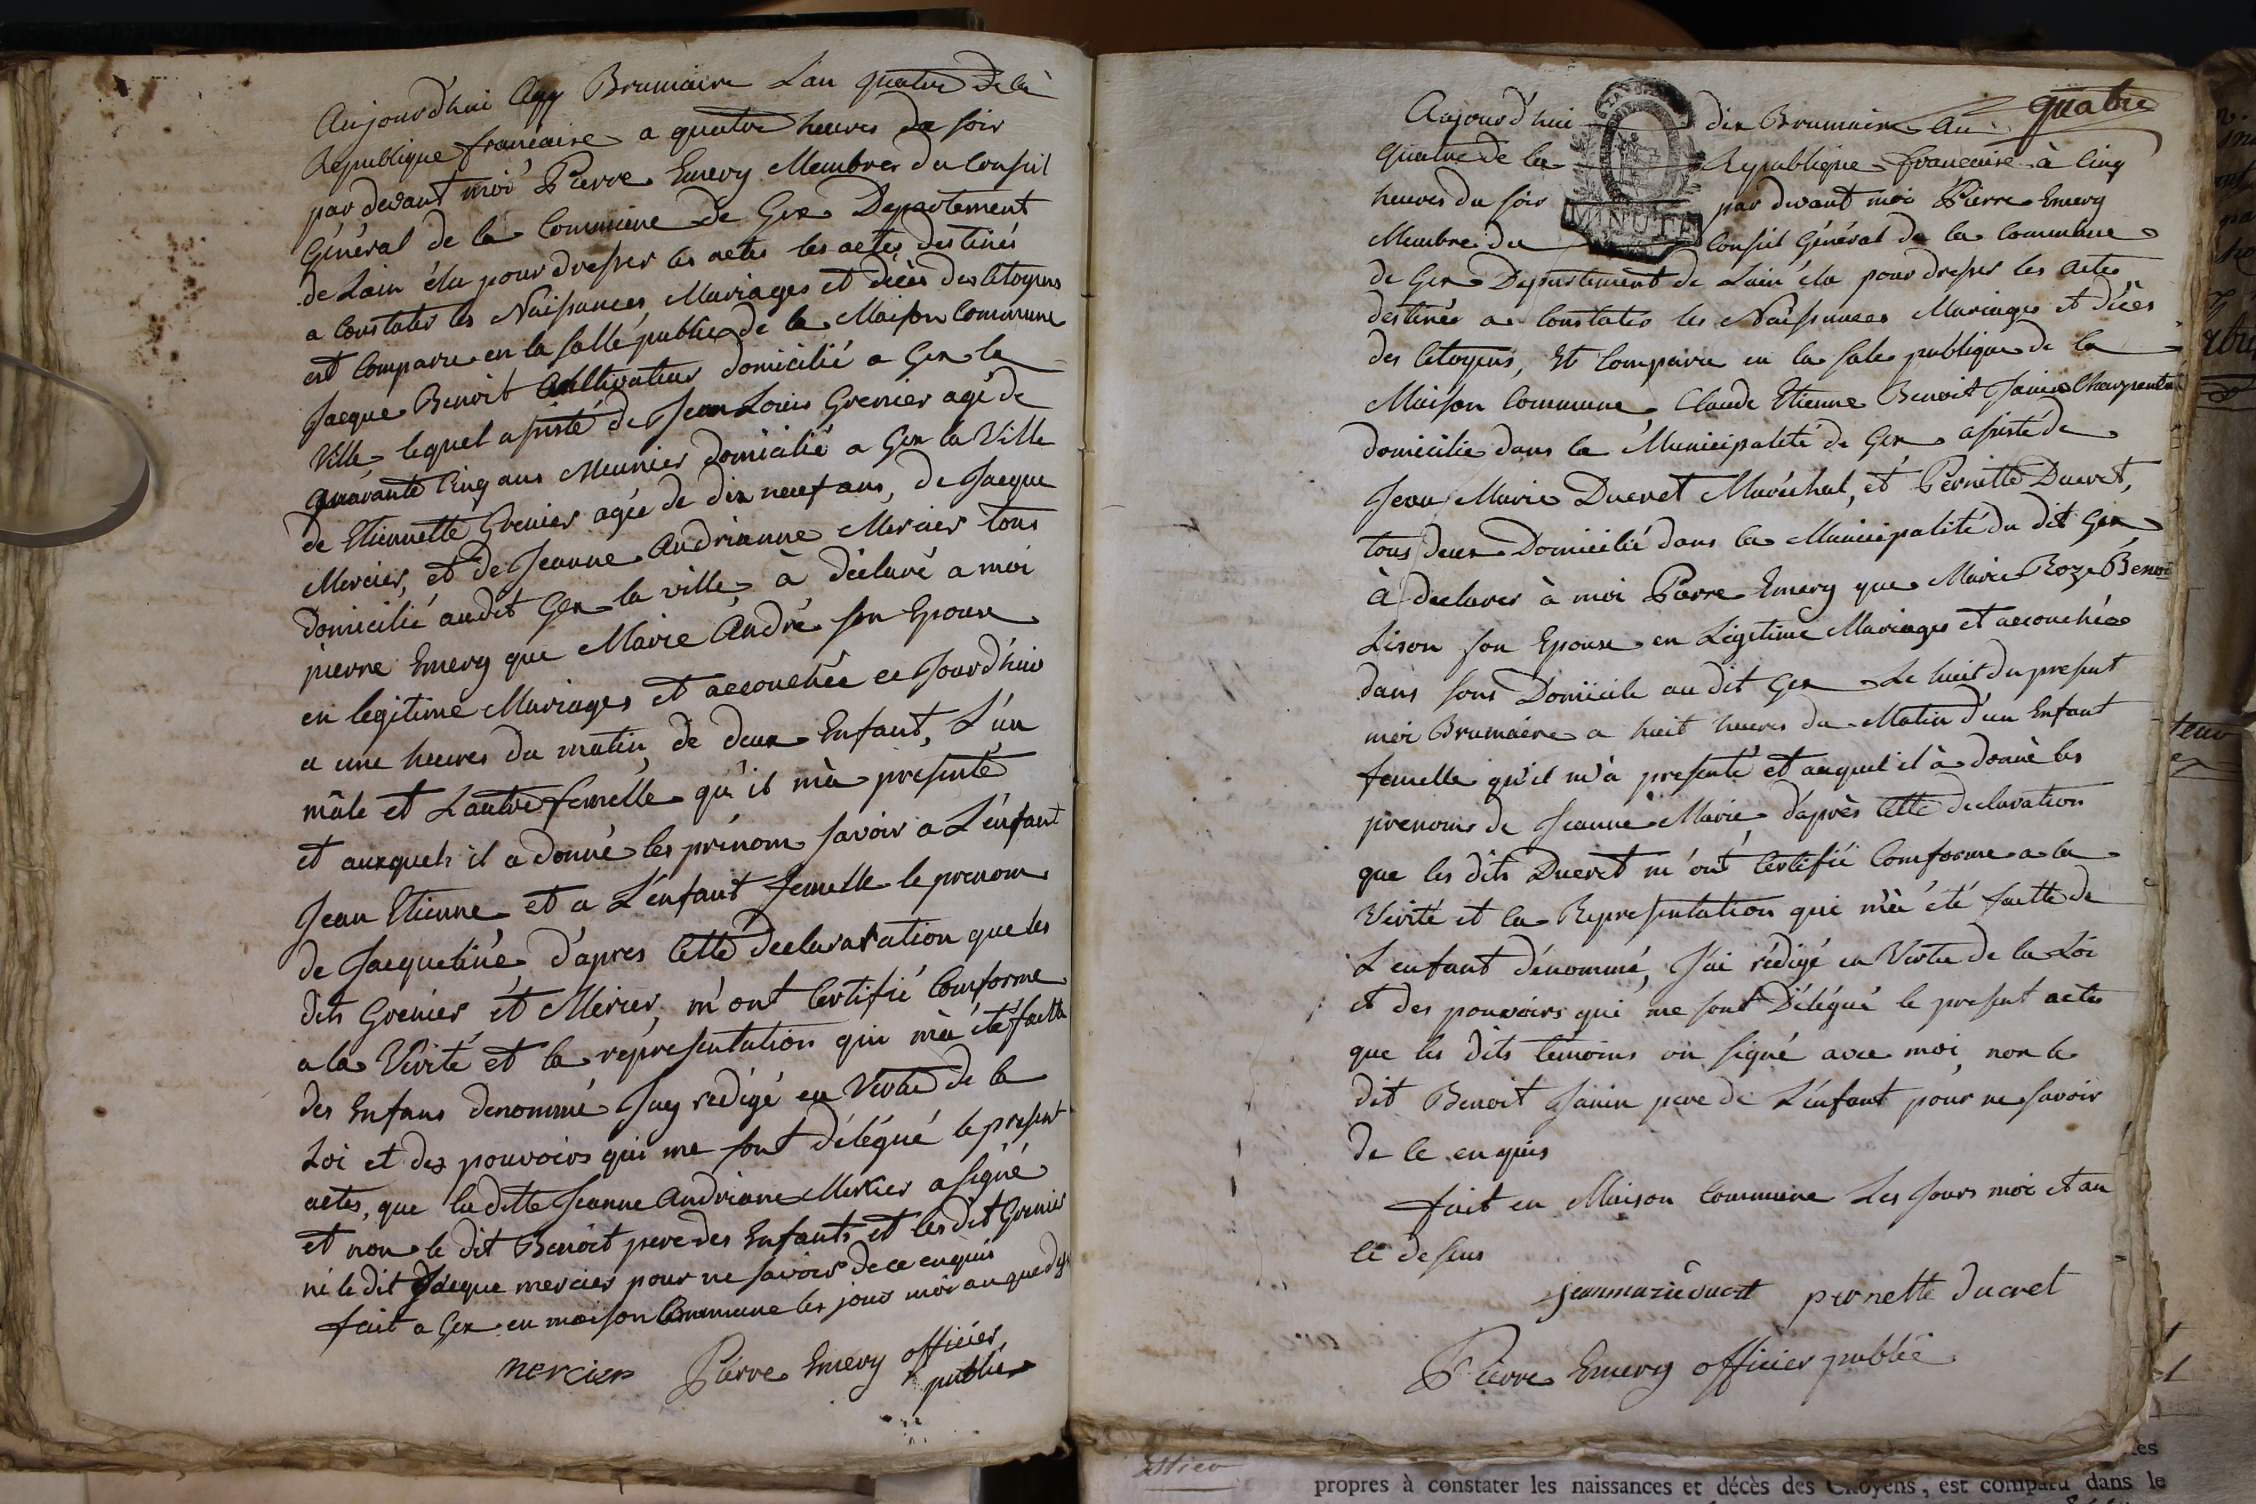 Aujourd'hui Brumaire L'an quatre de la
Republique francaise a quatre heures du soir
par devant moi Pierre Emery Membres du Conseil
Général de la Commune de Gex Departement
de Lain élu pour dresser les actes les actes destinés
a Constater les Naissances, Mariages et décès des Citoyens
est Comparu en la salle public de la Maison Commune
Jacque Benoit Cultivateur domicilié a Gex la
Ville, lequel assisté de Jean Louis Grenier agé de
quarante Cinq ans Meunier domicilié a Gex la Ville
de Etiennette Grenier agée de dix neuf ans, de Jacque
Mercier, et de Jeanne Andrianne Mercier tous
domicilié audit Gex la ville, à déclaré a moi
pierre Emery que Marie André son Epouse
en legitime Mariages et accouchée ce Jourd'hui
a une heures du matin, de deux Enfant, L'un
mâle et Lautre femelle qu'il m'a presenté
et auxquels il a donné les prénom savoir a L'énfant
Jean Etienne et a L'enfant femelle le prenom
de Jacqueline d'apres Cette declaration que les
dits Grenier et Mercier, m'ont Certifié Conforme
a la Vérité et la representation qui m'a été faitte
des Enfans denommé J'ay redigé en Vertu de la
Loi et des pouvoirs qui me sont délégué le present
actes, que laditte Jeanne Andrianne Mercier a signé
et non le dit Benoit pere des Enfants et les dit Grenier
ni le dit Jacque mercier pour ne savoir de ce enquis
fait a Gex en maison Commune les jours mois an que dessus
mercier Pierre Emery officier
public
quatre
Aujourd'hui dix Brumaire an
quatre de la Republique francaise à Cinq
heures du soir par devant moi Pierre Emery
MINUTE
Membre du Conseil Général de la Commune
de Gex Departement de Lain élu pour dresser les actes
destinés a Constater les Naissances Mariages et décès
des Citoyens, Est Comparu en la sale publique de la
Maison Commune Claude Etienne Benoit Janin Charpentier
domicilie dans la Municipalité de Gex assisté de
Jean Marie Ducret Maréchal, et Pernette Ducret,
tous deux Domicilié dans la Municipalité du dit Gex
à declarer à moi Pierre Emery que Marie Roze Benoit
Lison son Epouse en Légitime Mariages et accouchée
dans sons Domicile au dit Gex Le huit du present
moi Brumaire a huit heures du Matin d'un Enfant
femelle qu'il m'a presenté et auquel il à donné les
prenoms de Jeanne Marie d'après Cette declaration
que les dits Ducret m'ont Certifié Comforme a la
Vérité et la Representation qui m'à été faitte de
L'enfant dénommé, J'ai rédigé en Vertu de la Loi
et des pouvoirs qui me sont Délégué le present actes
que les dits temoins on signé avec moi, non le
dit Benoit Janin pere de L'énfant pour ne savoir
de ce enquis
fait en Maison Commune Les Jours moi et an
ci desus
jeanmarie ducret pernette ducret
Pierre Emery officier public
propres à constater les naissances et décès des Citoyens, est comparu dans le